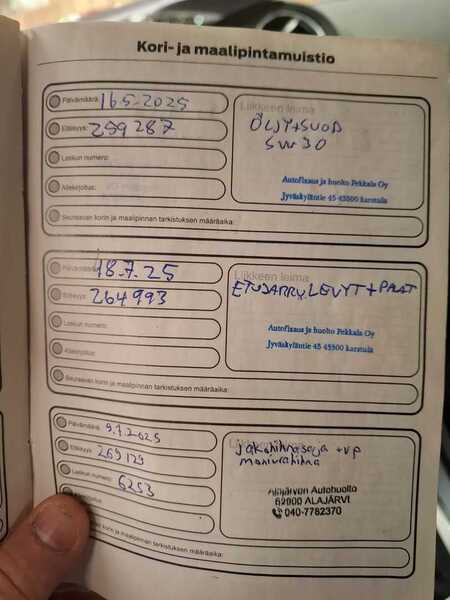 Kori- ja maalipintamuistio
Päivämäärä: 16.5.2025
Etäisyys: 259287
Laskun numero:
Allekirjoitus:
Seuraavan korin ja maalipinnan tarkistuksen määräaika:
Liikkeen leima
ÖLJY+SUOD
5W30
Autofixaus ja huolto Pekkala Oy
Jyväskyläntie 45 43500 karstula
Päivämäärä: 18.7.25
Etäisyys: 264993
Laskun numero:
Allekirjoitus:
Seuraavan korin ja maalipinnan tarkistuksen määräaika:
Liikkeen leima
ETUJARRU LEVYT+PALAT
Autofixaus ja huolto Pekkala Oy
Jyväskyläntie 45 43500 karstula
Päivämäärä: 9.7.2025
Etäisyys: 269129
Laskun numero: 6253
Allekirjoitus:
korin ja maalipinnan tarkistuksen määräaika:
Jakohihnasarja +vp
moniurahihna
Alajärven Autohuolto
62900 ALAJÄRVI
040-7782370